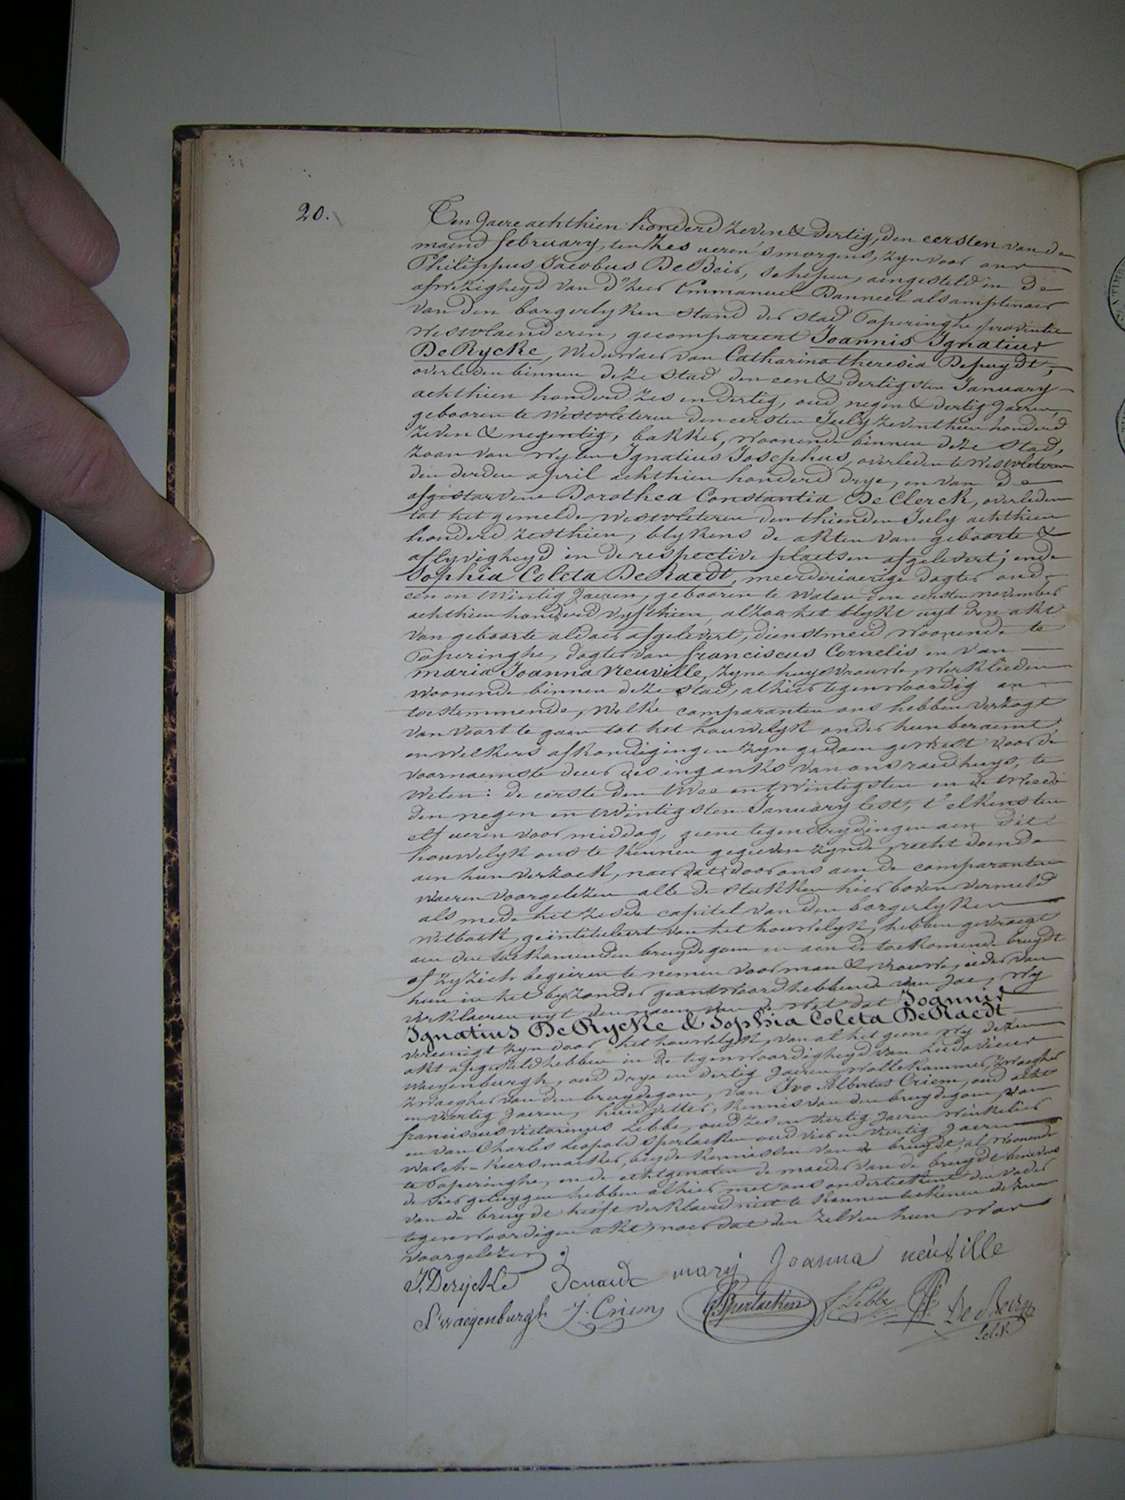 20.
Ten Jaere achthien honderd zeven & dertig, den eersten van de
maend february, ten zes ueren s'morgens, zyn voor ons
Philippus Jacobus De Beir, schepen, aengesteld in de
afwezigheyd van d'heer Emmanuel Vanneel als amptenaer
van den borgerlyken stand der stad Poperinghe provintie
Westvlaenderen, gecompareert Joannis Ignatius
De Rycke, Weduwaer van Catharina theresia Depuydt,
overleden binnen deze stad den een & dertigsten January
achthien honderd zes en dertig, oud negen & dertig Jaeren,
gebooren te Westvleteren den eersten July zeventhien honderd
zeven & negentig, bakker, woonende binnen deze stad,
zoon van wylen Ignatius Josephus, overleden te Westvleteren
den derden april achthien honderd drye, en van de
afgestorvene Dorothea Constantia De Clerck, overleden
tot het gemelde Westvleteren den thienden July achthien
honderd zesthien, blykens de akten van geboorte &
aflyvigheyd in de respective plaetsen afgelevert; ende
Sophia Coleta De Raedt, meerderjaerige dogter oud
een en twintig Jaeren, gebooren te Watou den eersten november
achthien honderd vyfthien, alzoo het blykt uyt den akt
van geboorte aldaer afgelevert, dienstmeid woonende te
Poperinghe, dogter van franciscus Cornelis en van
maria Joanna Neuville, zyne huysvrouwe, werklieden
woonende binnen deze stad, alhier tegenwoordig en
toestemmende, Welke comparanten ons hebben verzogt
van voort te gaen tot het houwelyk onder hun beraemt
en welkers afkondigingen zyn gedaen geweest voor de
voornaemste deur des inganks van ons raedhuys, te
weten: de eerste den twee en twintigsten en de tweede
den negen en twintigsten January lest, t'elkensten
elf ueren voor middag, geene tegenstrydingen aen dit
houwelyk ons te kennen gegeven zynde, recht doende
aen hun verzoek, naer dat door ons aen de comparanten
waeren voorgelezen alle de stukken hier boven vermeld
als mede het zesde capitel van den borgerlyken
wetboek, geintituleert van het houwelyk, hebben gevraegt
aen den toekomenden bruydegom en aen de toekomende bruydt
of zy zich begeiren te nemen voor man & vrouwe, ieder van
hun in het byzonder geantwoord hebbende van Jae, Wy
verklaeren uyt den naem van de wet dat Joannis
Ignatius De Rycke & Sophia Coleta De Raedt
vereenigt zyn door het houwelyk, van al het geene wy dezen
akt opgesteld hebben in de tegenwoordigheyd van
Waeyenburgh, oud drye en dertig Jaeren,
zwaegher van den bruydegom, van Ivo Albertus Criem, oud
en viertig Jaeren, kennis van den bruydegom, van
franciscus victorinus Lebbe, oud zes en viertig Jaeren winkelier
en van Charles Leopold Sperlaeken oud vier en viertig Jaeren
Wasch-Keersmaeker, beyde kennissen van de bruydt, al woonende
te Poperinghe, en de echtgenoten de moeder van de bruydt benevens
de vier getuygen hebben alhier met ons onderteekent den vader
van de bruydt heeft verklaerd niet te konnen teekenen dezen
tegenwoordigen akt, naer dat den zelven hun was
voorgelezen
J. Derycke mary Joanna neuville
L. waeyenburgh J. Criem Sperlaeken f. Lebbe Ph. De Beir